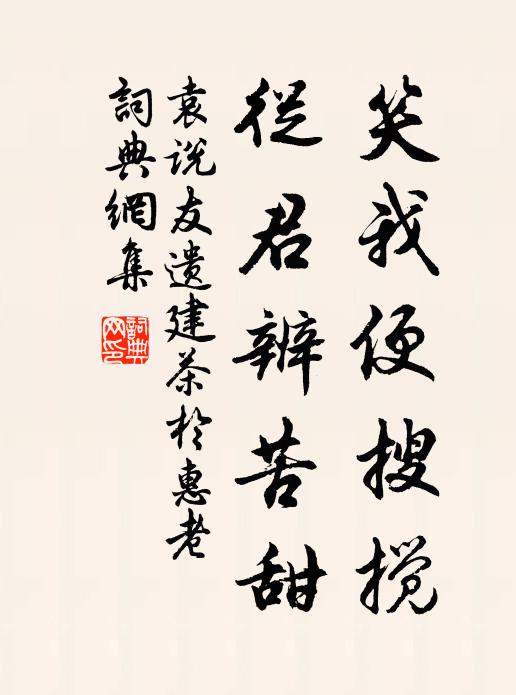 笑我便搜攪
從君辨苦甜
袁说友遺建茶於惠老
詞典網集
詞典网印